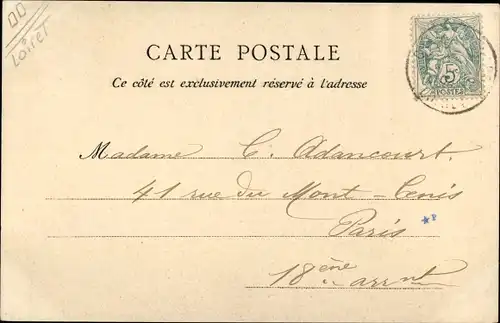 OO
Loiret
CARTE POSTALE
Ce côté est exclusivement réservé à l'adresse
5c
POSTES
Madame C. Adancourt.
41 rue du Mont-Cenis
Paris
18ème arrnt